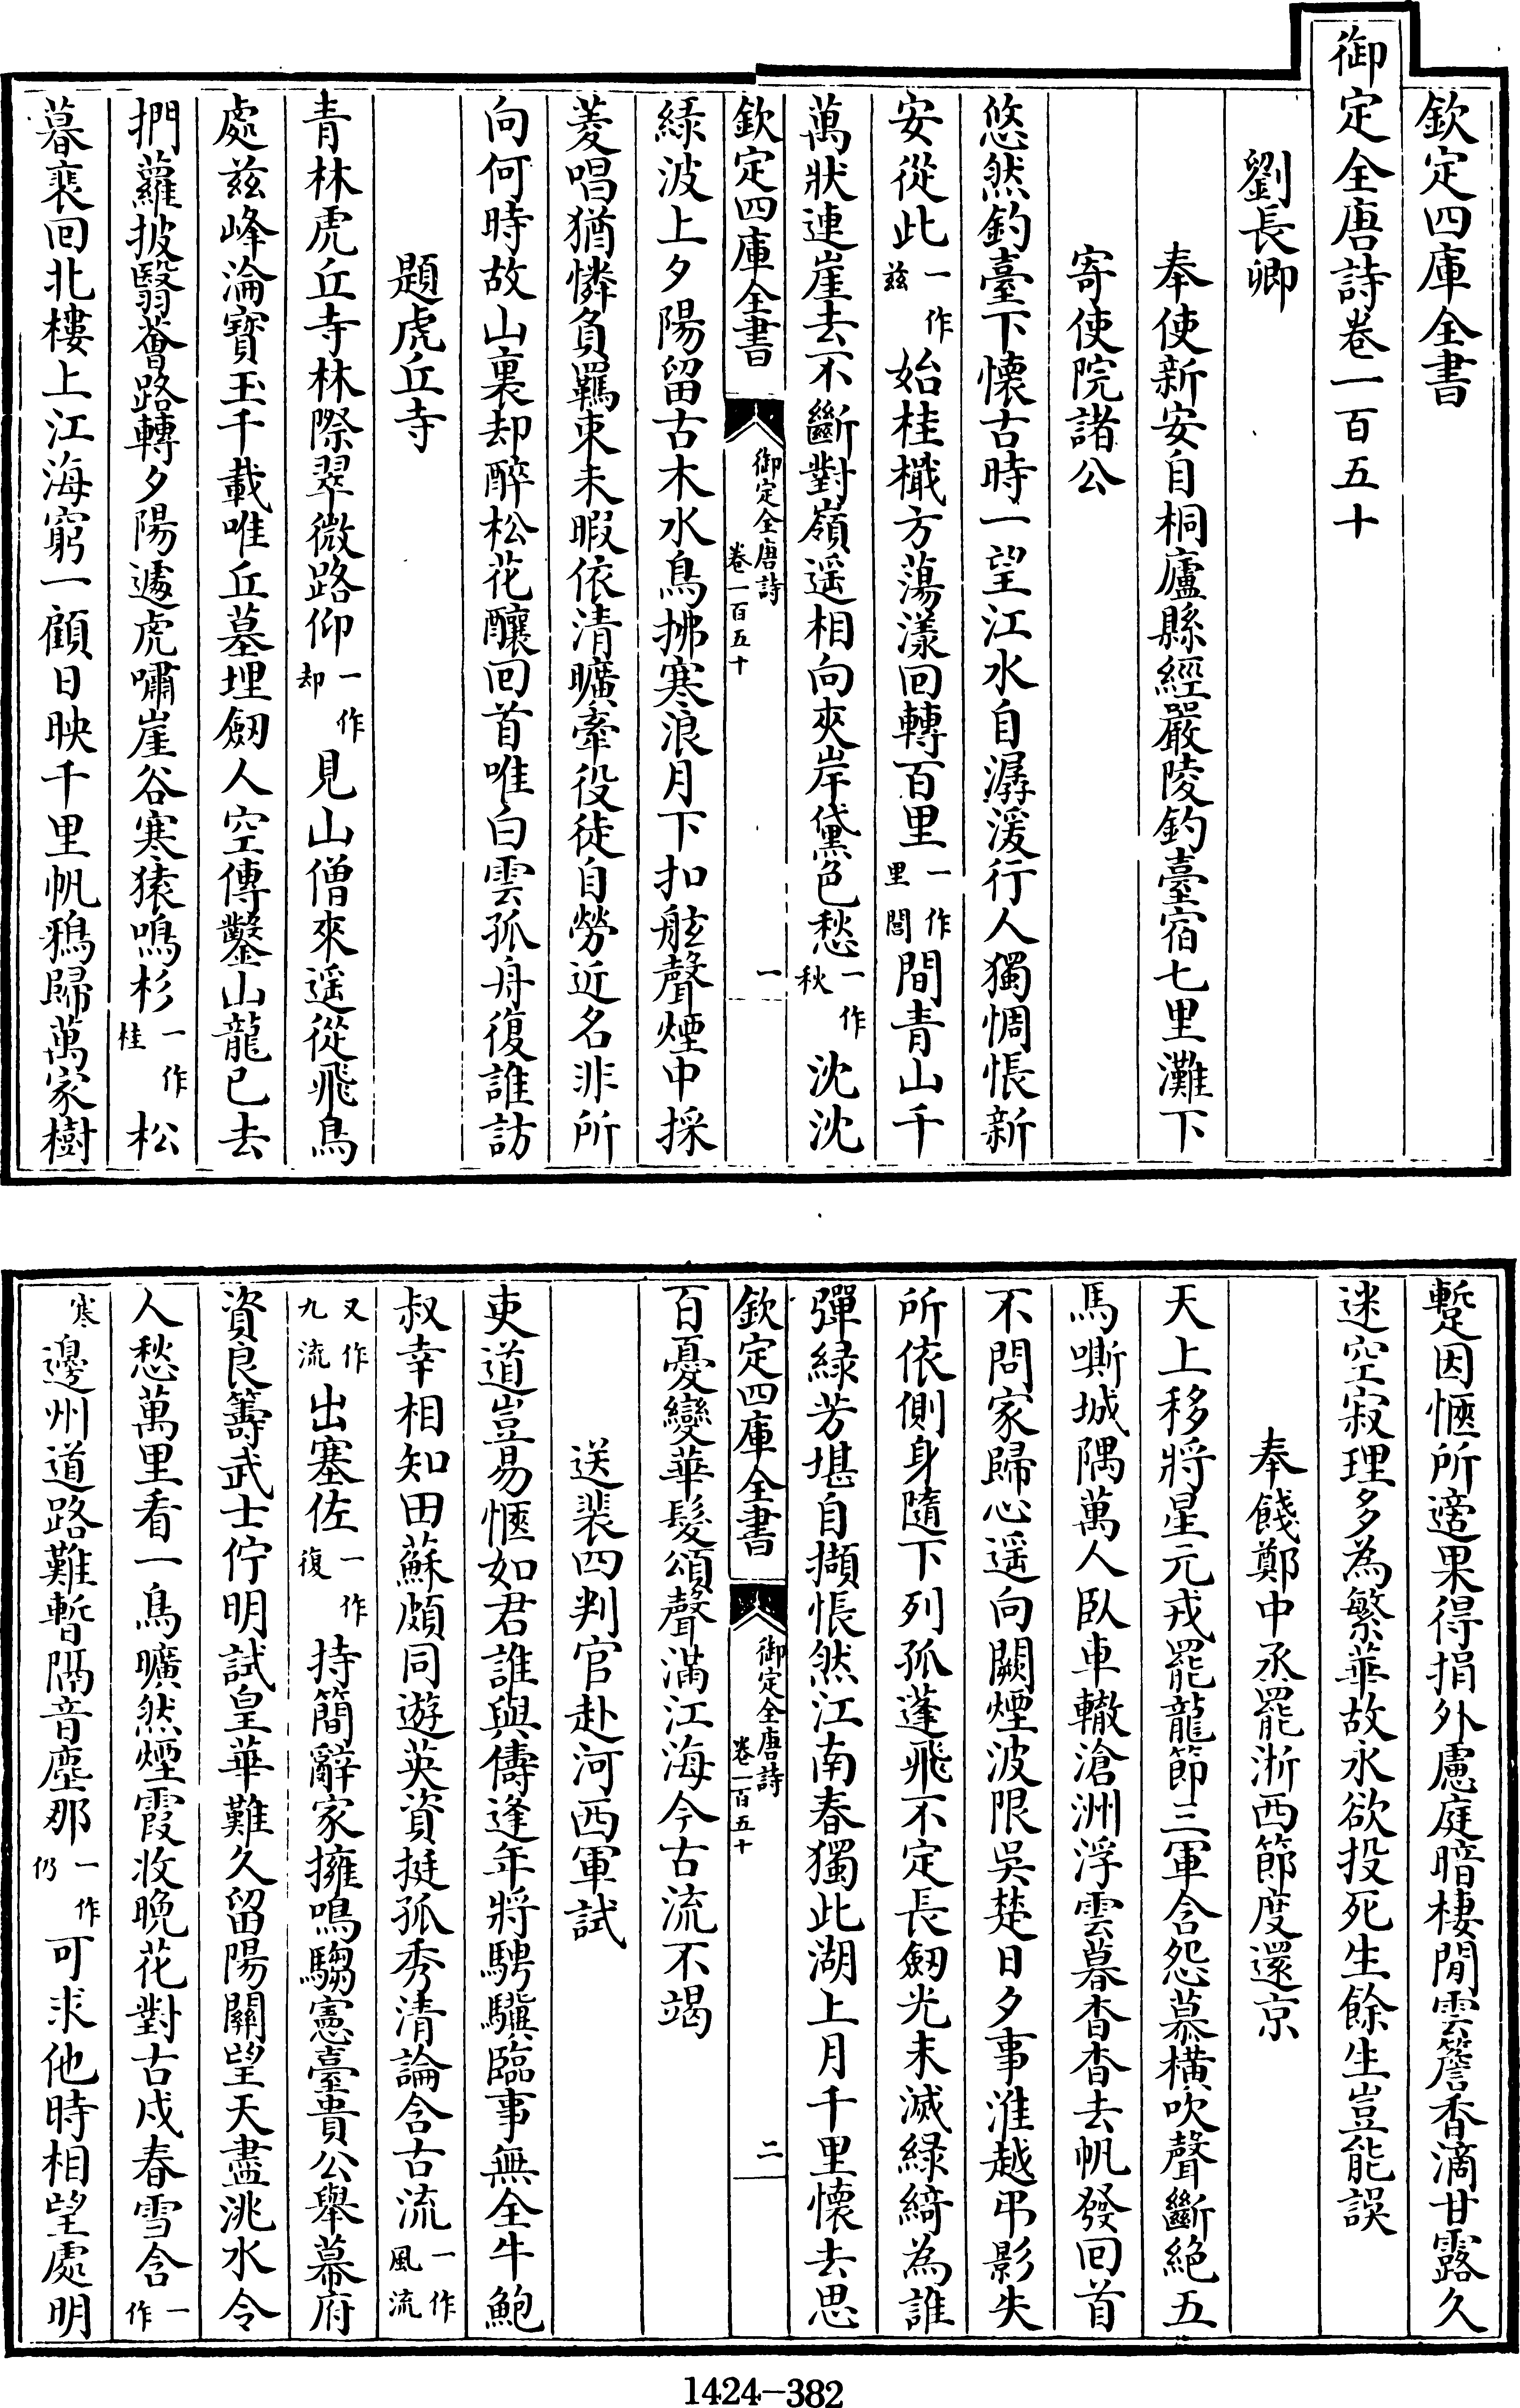 欽定四庫全書
御定全唐詩卷一百五十
劉長卿
奉使新安自桐廬縣經嚴陵釣臺宿七里灘下
寄使院諸公
悠然釣臺下懷古時一望江水自潺湲行人獨惆悵新
安從此一作兹始桂檝方蕩漾回轉百里一作里閭間青山千
萬狀連崖去不斷對嶺遥相向夾岸黛色愁一作秋沈沈
欽定四庫全書
御定全唐詩
卷一百五十
一
綠波上夕陽留古木水鳥拂寒浪月下扣舷聲煙中採
菱唱猶憐負羈束未暇依清曠牽役徒自勞近名非所
向何時故山裏却醉松花釀回首唯白雲孤舟復誰訪
題虎丘寺
青林虎丘寺林際翠微路仰一作却見山僧來遥從飛鳥
處兹峰淪寶玉千載唯丘墓埋劒人空傳鑿山龍已去
捫蘿披翳薈路轉夕陽遽虎嘯崖谷寒猿鳴杉一作桂松
暮裵回北樓上江海窮一顧日映千里帆鴉歸萬家樹
蹔因愜所適果得捐外慮庭暗棲閒雲簷香滴甘露久
迷空寂理多為繁華故永欲投死生餘生豈能誤
奉餞鄭中丞罷浙西節度還京
天上移將星元戎罷龍節三軍含怨慕橫吹聲斷絕五
馬嘶城隅萬人臥車轍滄洲浮雲暮杳杳去帆發回首
不問家歸心遥向闕煙波限吳楚日夕事淮越弔影失
所依側身隨下列孤蓬飛不定長劒光未滅綠綺為誰
彈綠芳堪自擷悵然江南春獨此湖上月千里懷去思
欽定四庫全書
御定全唐詩
卷一百五十
二
百憂變華髮頌聲滿江海今古流不竭
送裴四判官赴河西軍試
吏道豈易愜如君誰與儔逢年將騁驥臨事無全牛鮑
叔幸相知田蘇頗同遊英資挺孤秀清論含古流一作風流
又作九流出塞佐一作復持簡辭家擁鳴騶憲臺貴公舉幕府
資良籌武士佇明試皇華難久留陽關望天盡洮水令
人愁萬里看一鳥曠然煙霞收晚花對古戍春雪含一作
寒邊州道路難暫隔音塵那一作仍可求他時相望處明
1424-382